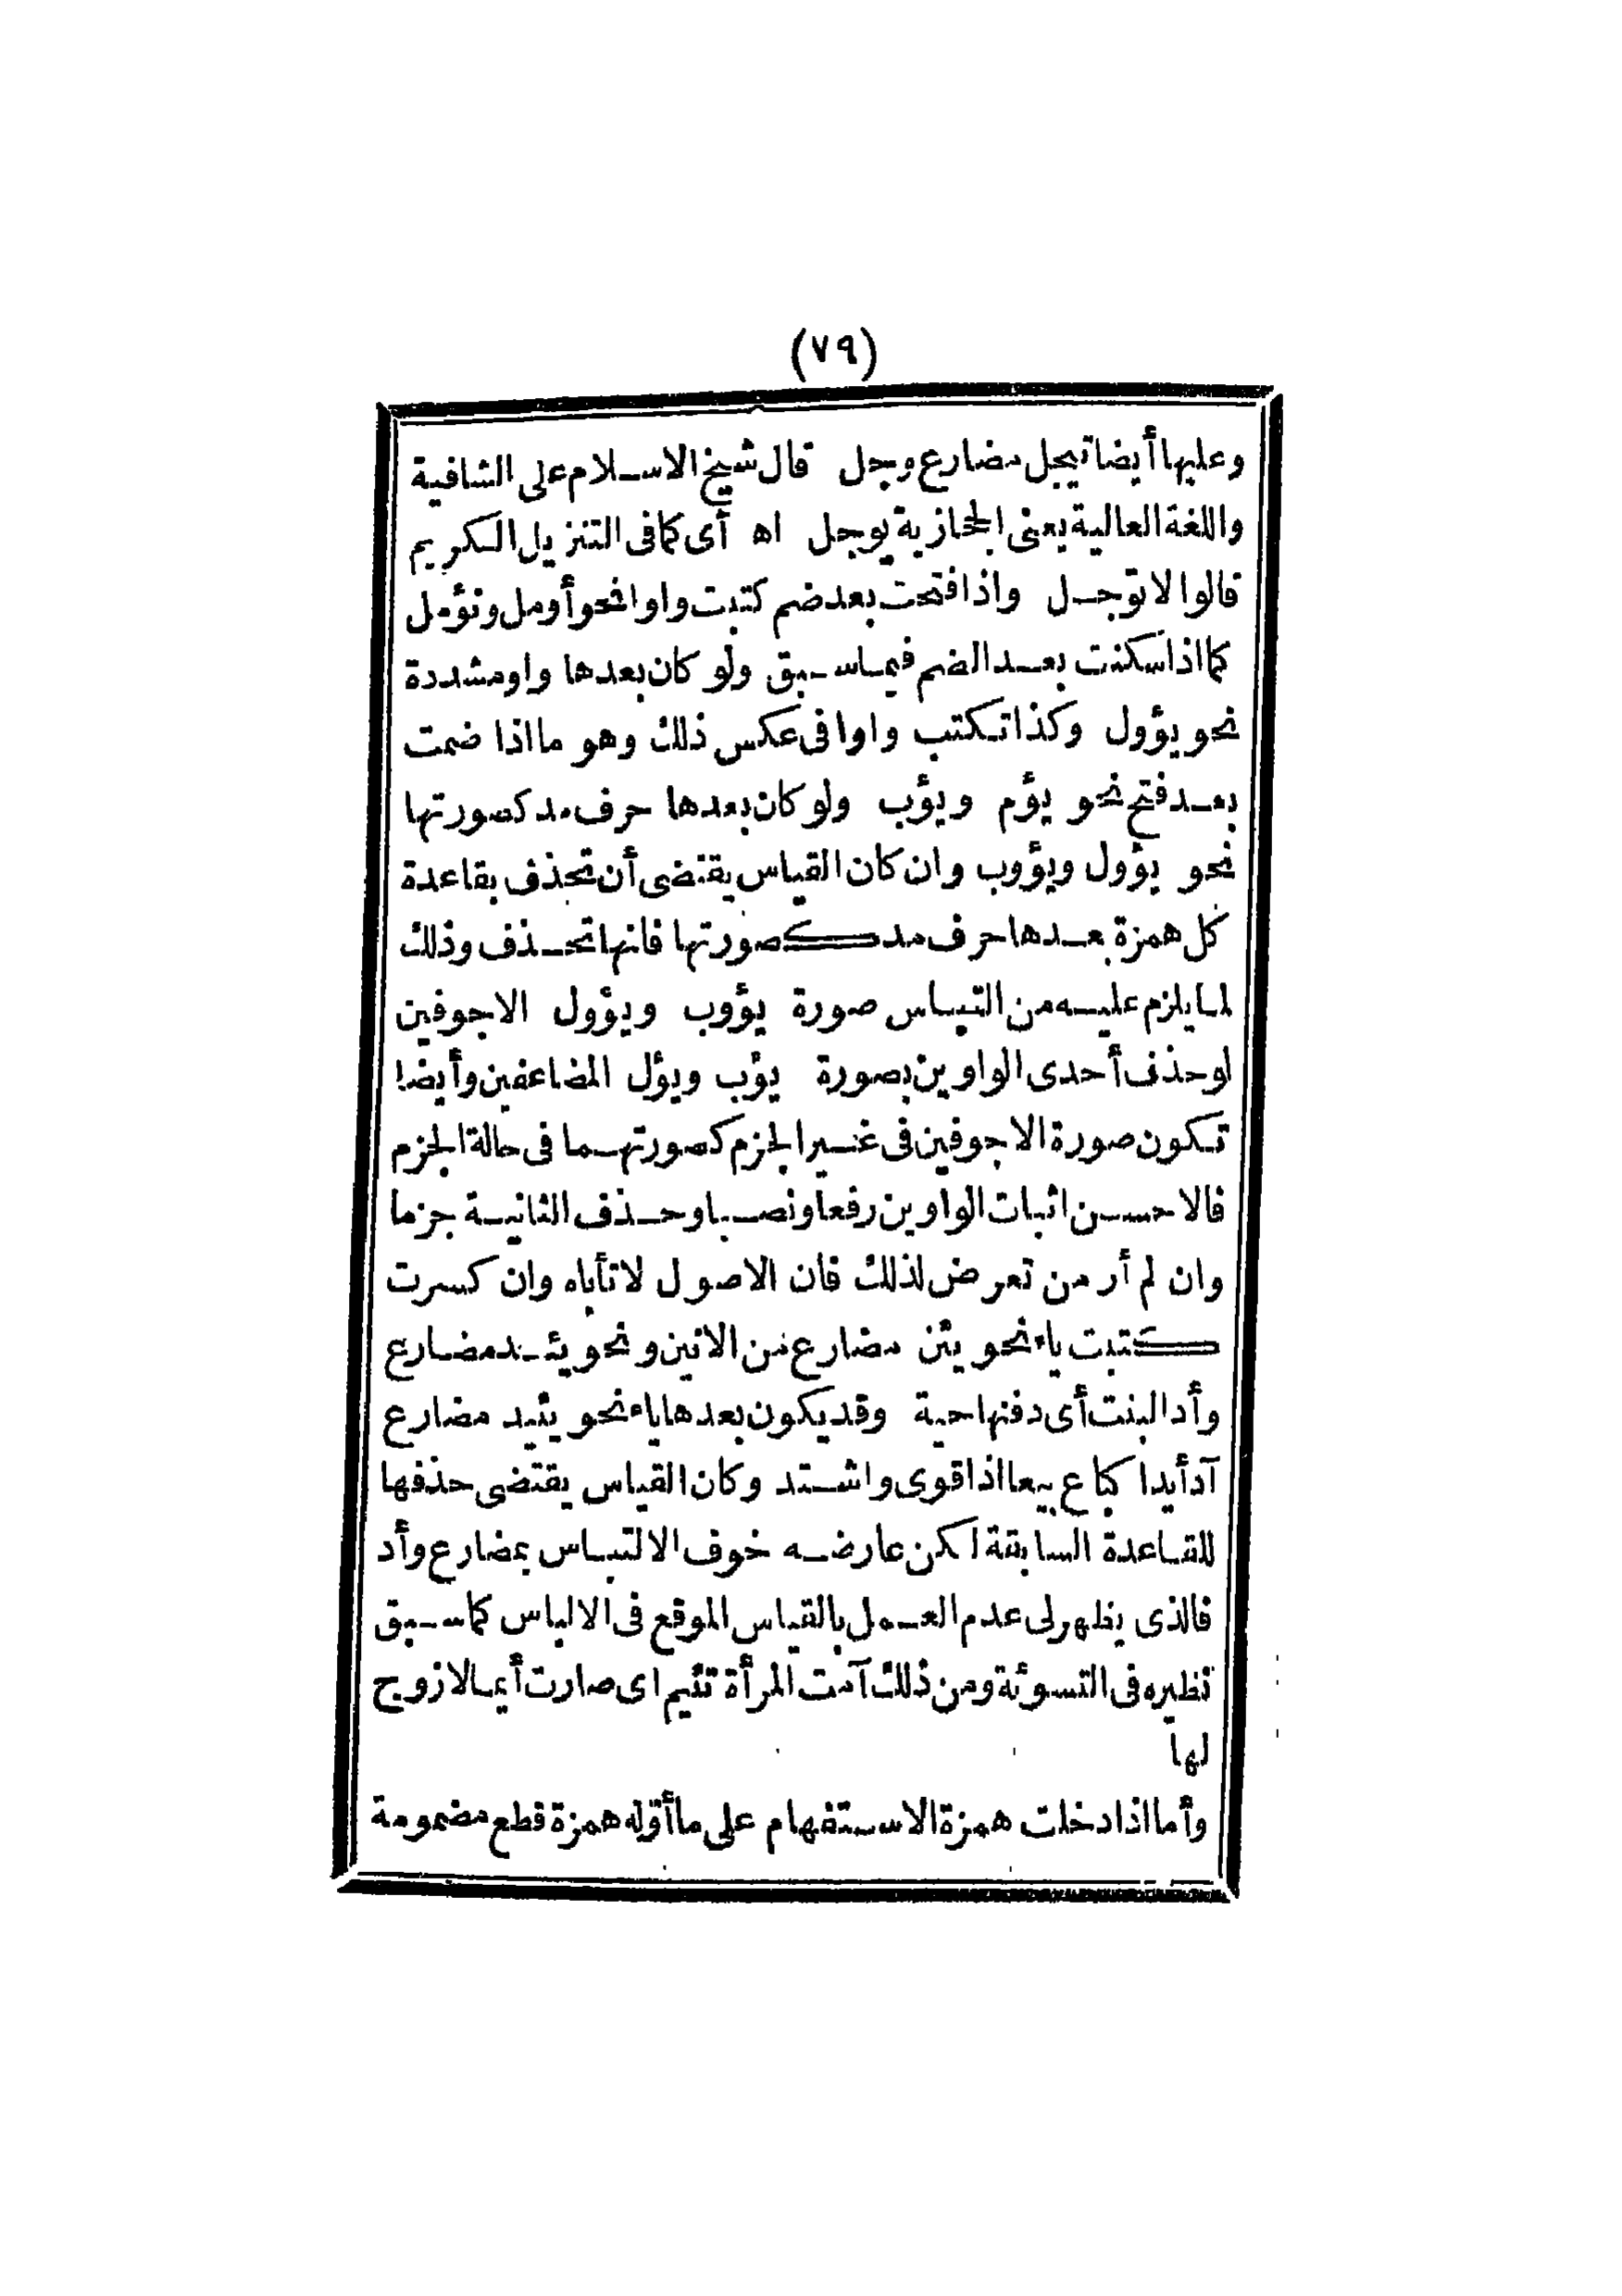 (٧٩)
وعليها أيضا تيجل مضارع وجل قال شيخ الاسلام على الشافية
واللغة العالية يعنى الحجازية يوجل اه أى كما فى التنزيل الكريم
قالوا لا توجل واذا فتحت بعد ضم كتبت واوا نحو أومل ونؤمل
كما اذا سكنت بعد الضم فيما سبق ولو كان بعدها واو مشددة
نحو يؤول وكذا تكتب واوا فى عكس ذلك وهو ما اذا ضمت
بعد فتح نحو يؤم ويؤب ولو كان بعدها حرف مد كصورتها
نحو يؤول ويؤوب وان كان القياس يقتضى أن تحذف بقاعدة
كل همزة بعدها حرف مد كصورتها فانها تحذف وذلك
لما يلزم عليه من التباس صورة يؤوب ويؤول الاجوفين
لو حذف أحدى الواوين بصورة يؤب ويؤل المضاعفين وأيضا
تكون صورة الاجوفين فى غير الجزم كصورتهما فى حالة الجزم
فالاحسن اثبات الواوين رفعا ونصبا وحذف الثانية جزما
وان لم أر من تعرض لذلك فان الاصول لا تأباه وان كسرت
كتبت ياء نحو يئن مضارع من الانين ونحو يئد مضارع
وأد البنت أى دفنها حية وقد يكون بعدها ياء نحو يئيد مضارع
آد أيدا كباع بيعا اذا قوى واشتد وكان القياس يقتضى حذفها
للقاعدة السابقة لكن عارضه خوف الالتباس بمضارع وأد
فالذى يظهر لى عدم العمل بالقياس الموقع فى الالباس كما سبق
نظيره فى التسوئة ومن ذلك آمت المرأة تئيم اى صارت أيما لا زوج
لها
وأما اذا دخلت همزة الاستفهام على ما أوله همزة قطع مضمومة